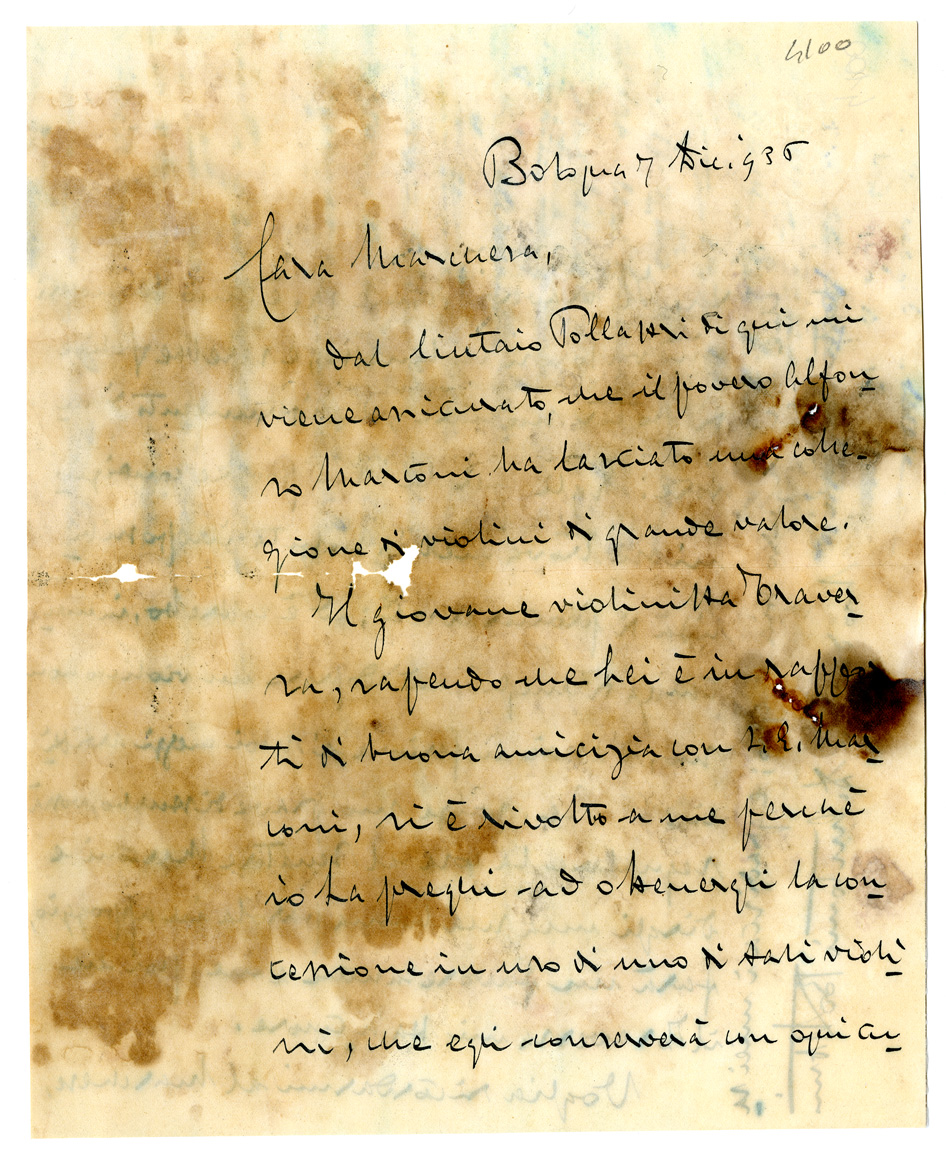 4100
Bologna 7 Dic. 936
Cara Marchesa,
dal liutaio Pollastri di qui mi
viene assicurato, che il povero Alfon-
so Marconi ha lasciato una colle-
zione di violini di grande valore.
Il giovane violinista Traver-
sa, sapendo che Lei è in rappor-
ti di buona amicizia con S. E. Mar-
coni, si è rivolto a me perchè
io La preghi ad ottenergli la con-
cessione in uso di uno di tali violi-
ni, che egli conserverà con ogni cu-